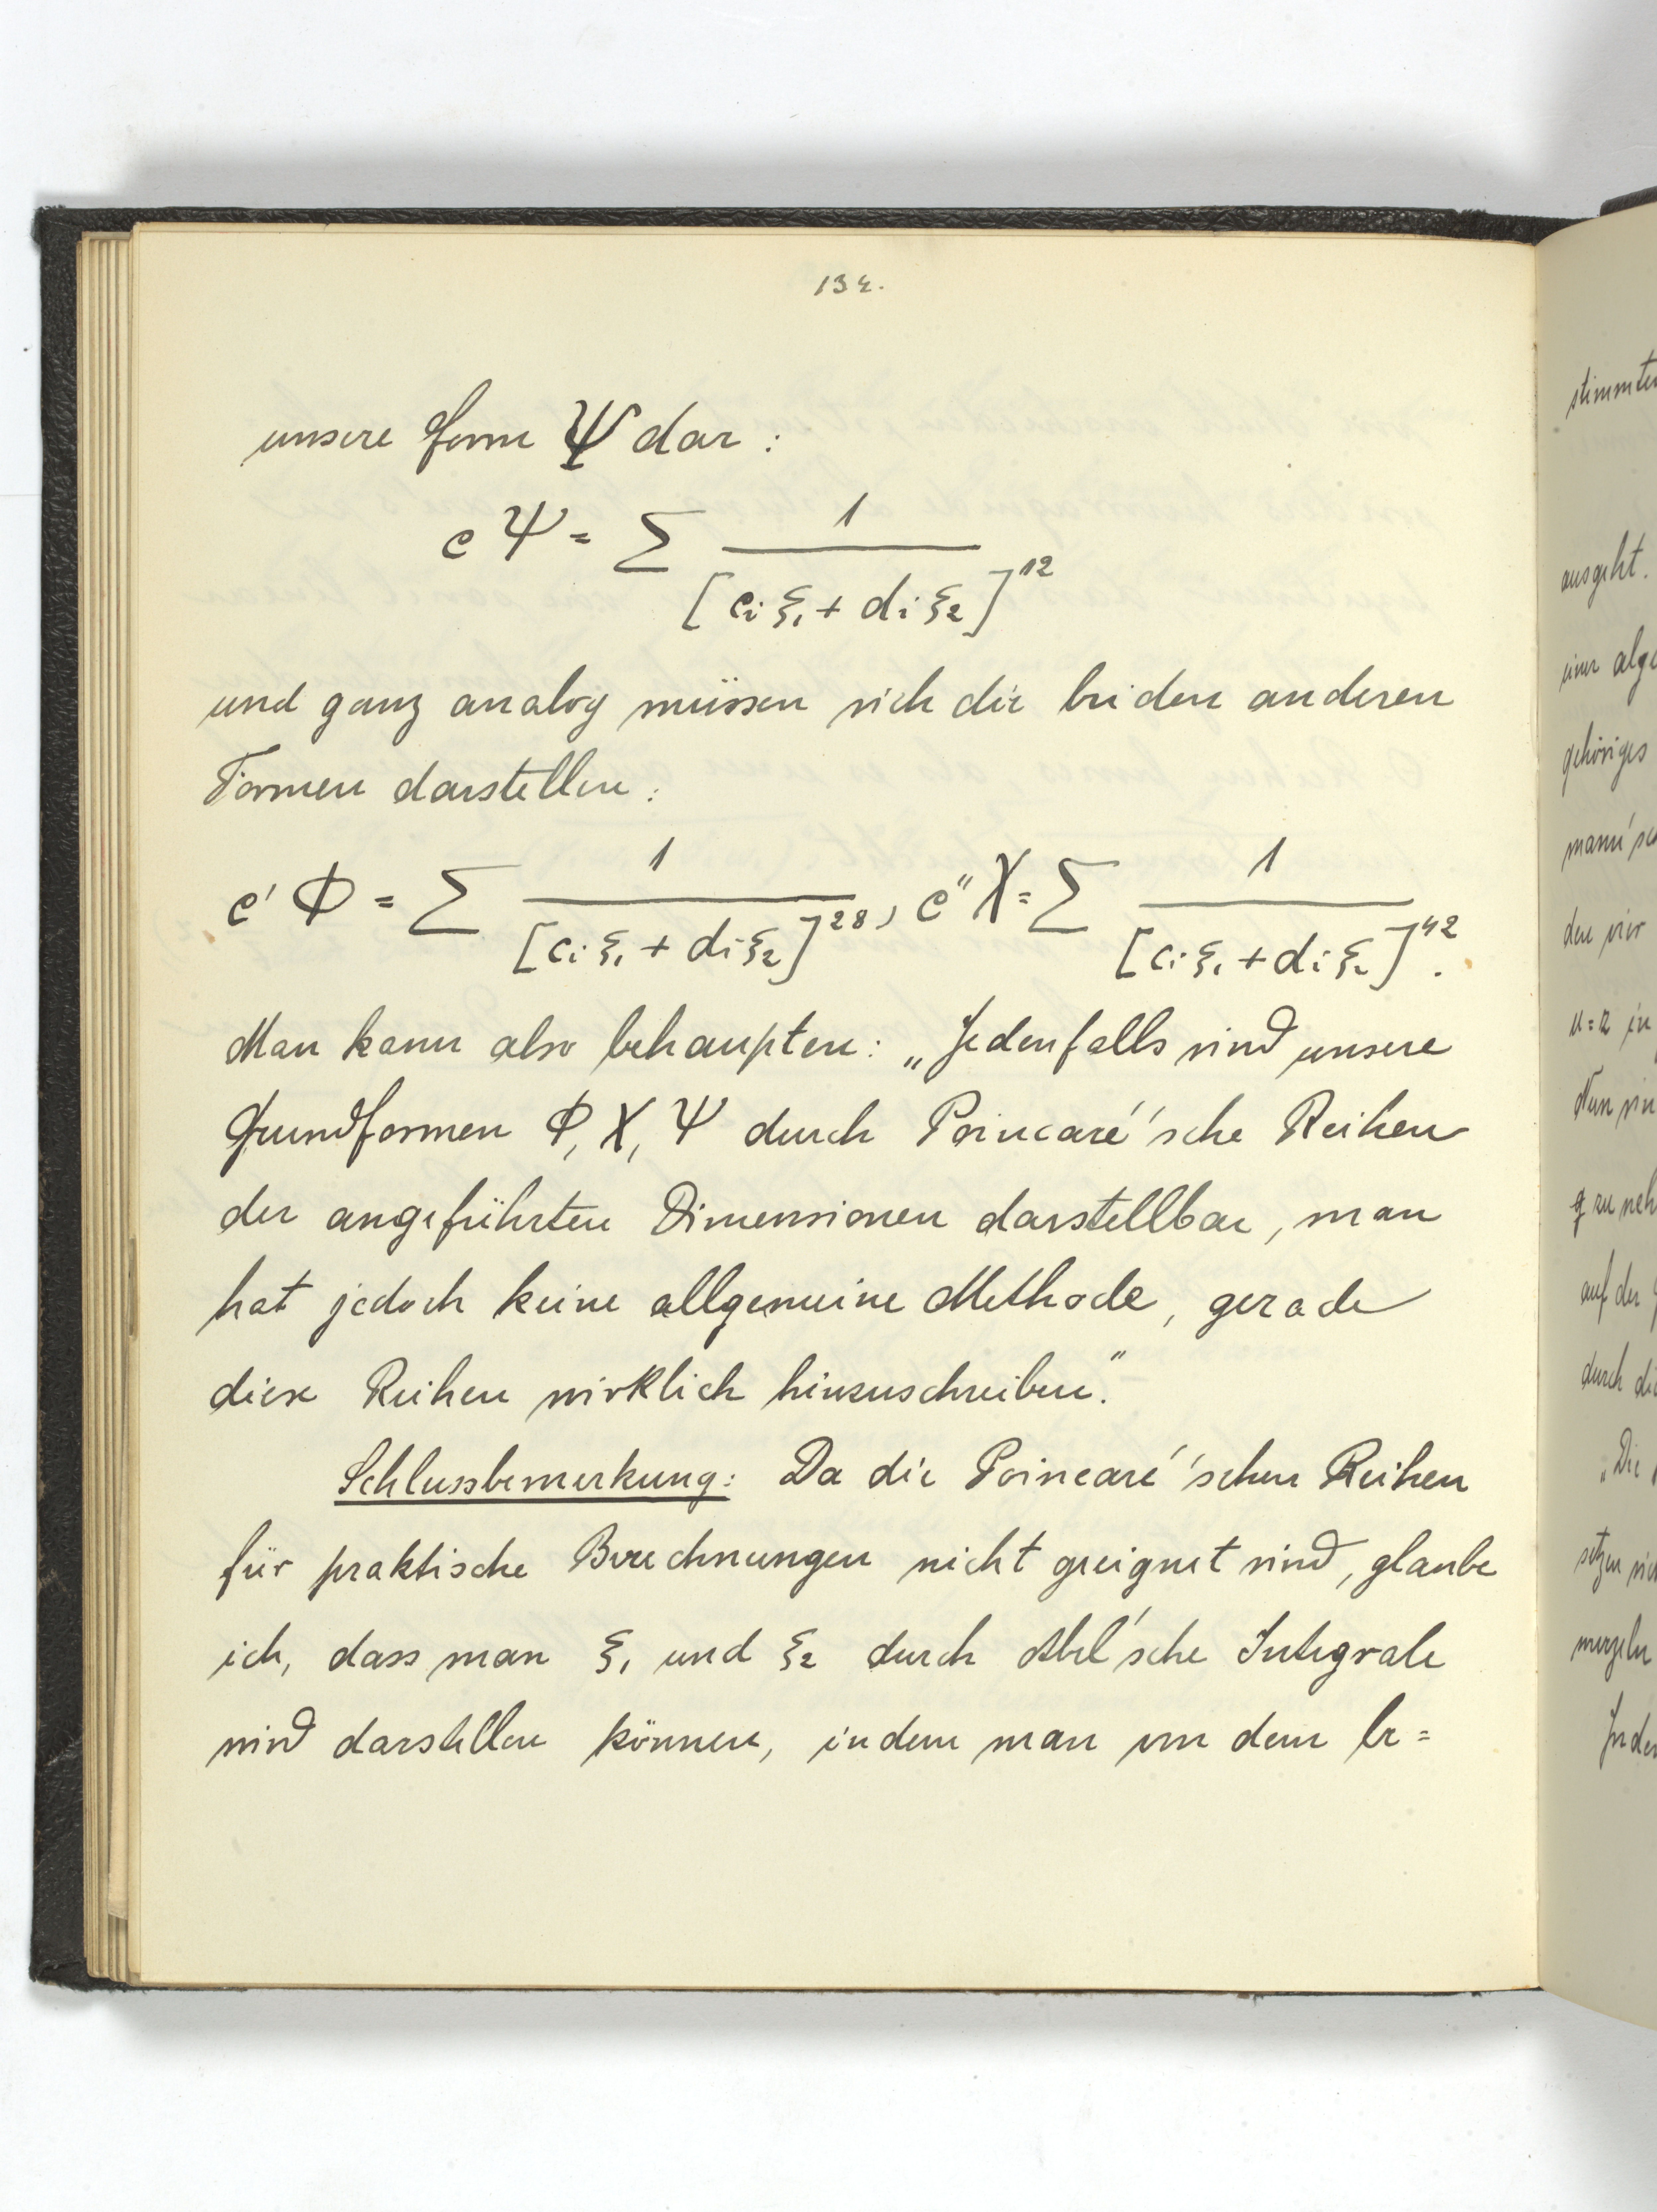 134.
unsere Form Ψ dar:
c Ψ = Σ 1 / [c_i ξ_1 + d_i ξ_2]^12
und ganz analog müssen sich die beiden anderen
Formen darstellen:
c' Φ = Σ 1 / [c_i ξ_1 + d_i ξ_2]^28, c'' X = Σ 1 / [c_i ξ_1 + d_i ξ_2]^42.
Man kann also behaupten: „Jedenfalls sind unsere
Grundformen Φ, X, Ψ durch Poincaré'sche Reihen
der angeführten Dimensionen darstellbar, man
hat jedoch keine allgemeine Methode, gerade
diese Reihen wirklich hinzuschreiben."
Schlussbemerkung: Da die Poincaré'schen Reihen
für praktische Berechnungen nicht geeignet sind, glaube
ich, dass man ξ_1 und ξ_2 durch Abel'sche Integrale
wird darstellen können, indem man von dem be=
stimmten
ausgeht.
einer alge
gehöriges
mann'sc
den vier
u=z in
Nun sin
g zu neh
auf der
durch die
„Die
setzen sich
Inde